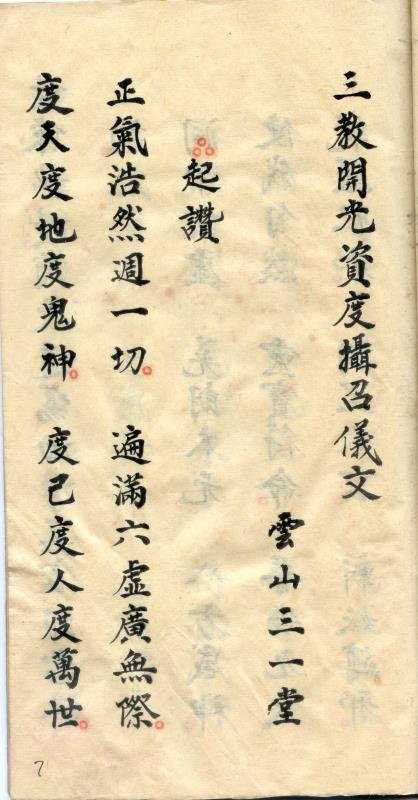 三教開光資度攝召儀文
雲山三一堂
起讚
正氣浩然週一切。 遍滿六虛廣無際。
度天度地度鬼神。 度己度人度萬世。
7